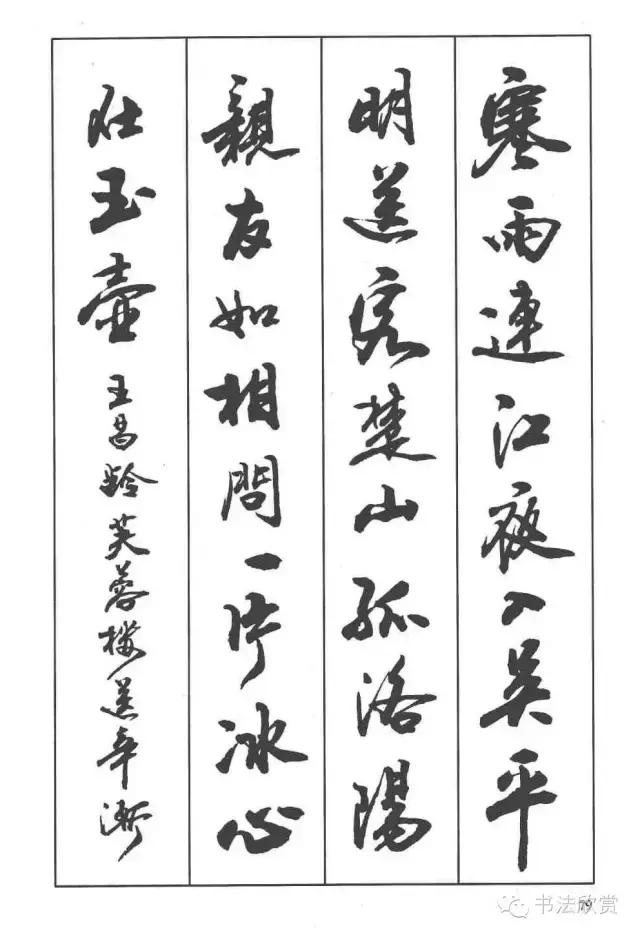 寒雨連江夜入吴平
明送客楚山孤洛陽
親友如相問一片冰心
在玉壺 王昌齡芙蓉樓送辛漸
79
书法欣赏